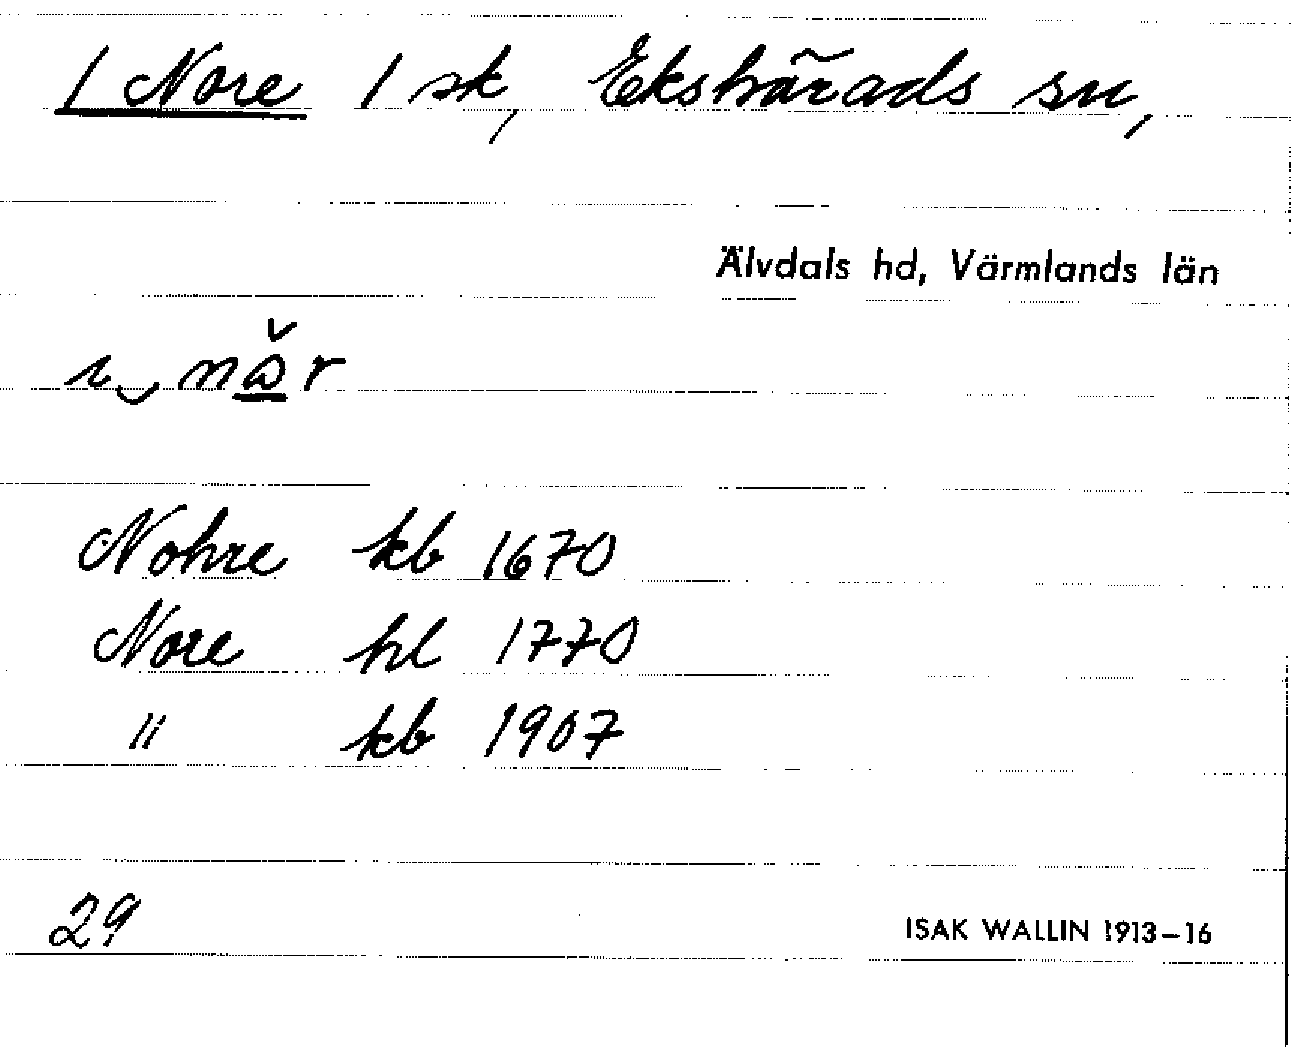 1 Nore 1 sk, Ekshärads sn,
Älvdals hd, Värmlands län
Nohre kb 1670
Nore hl 1770
" kb 1907
29
ISAK WALLIN 1913-16